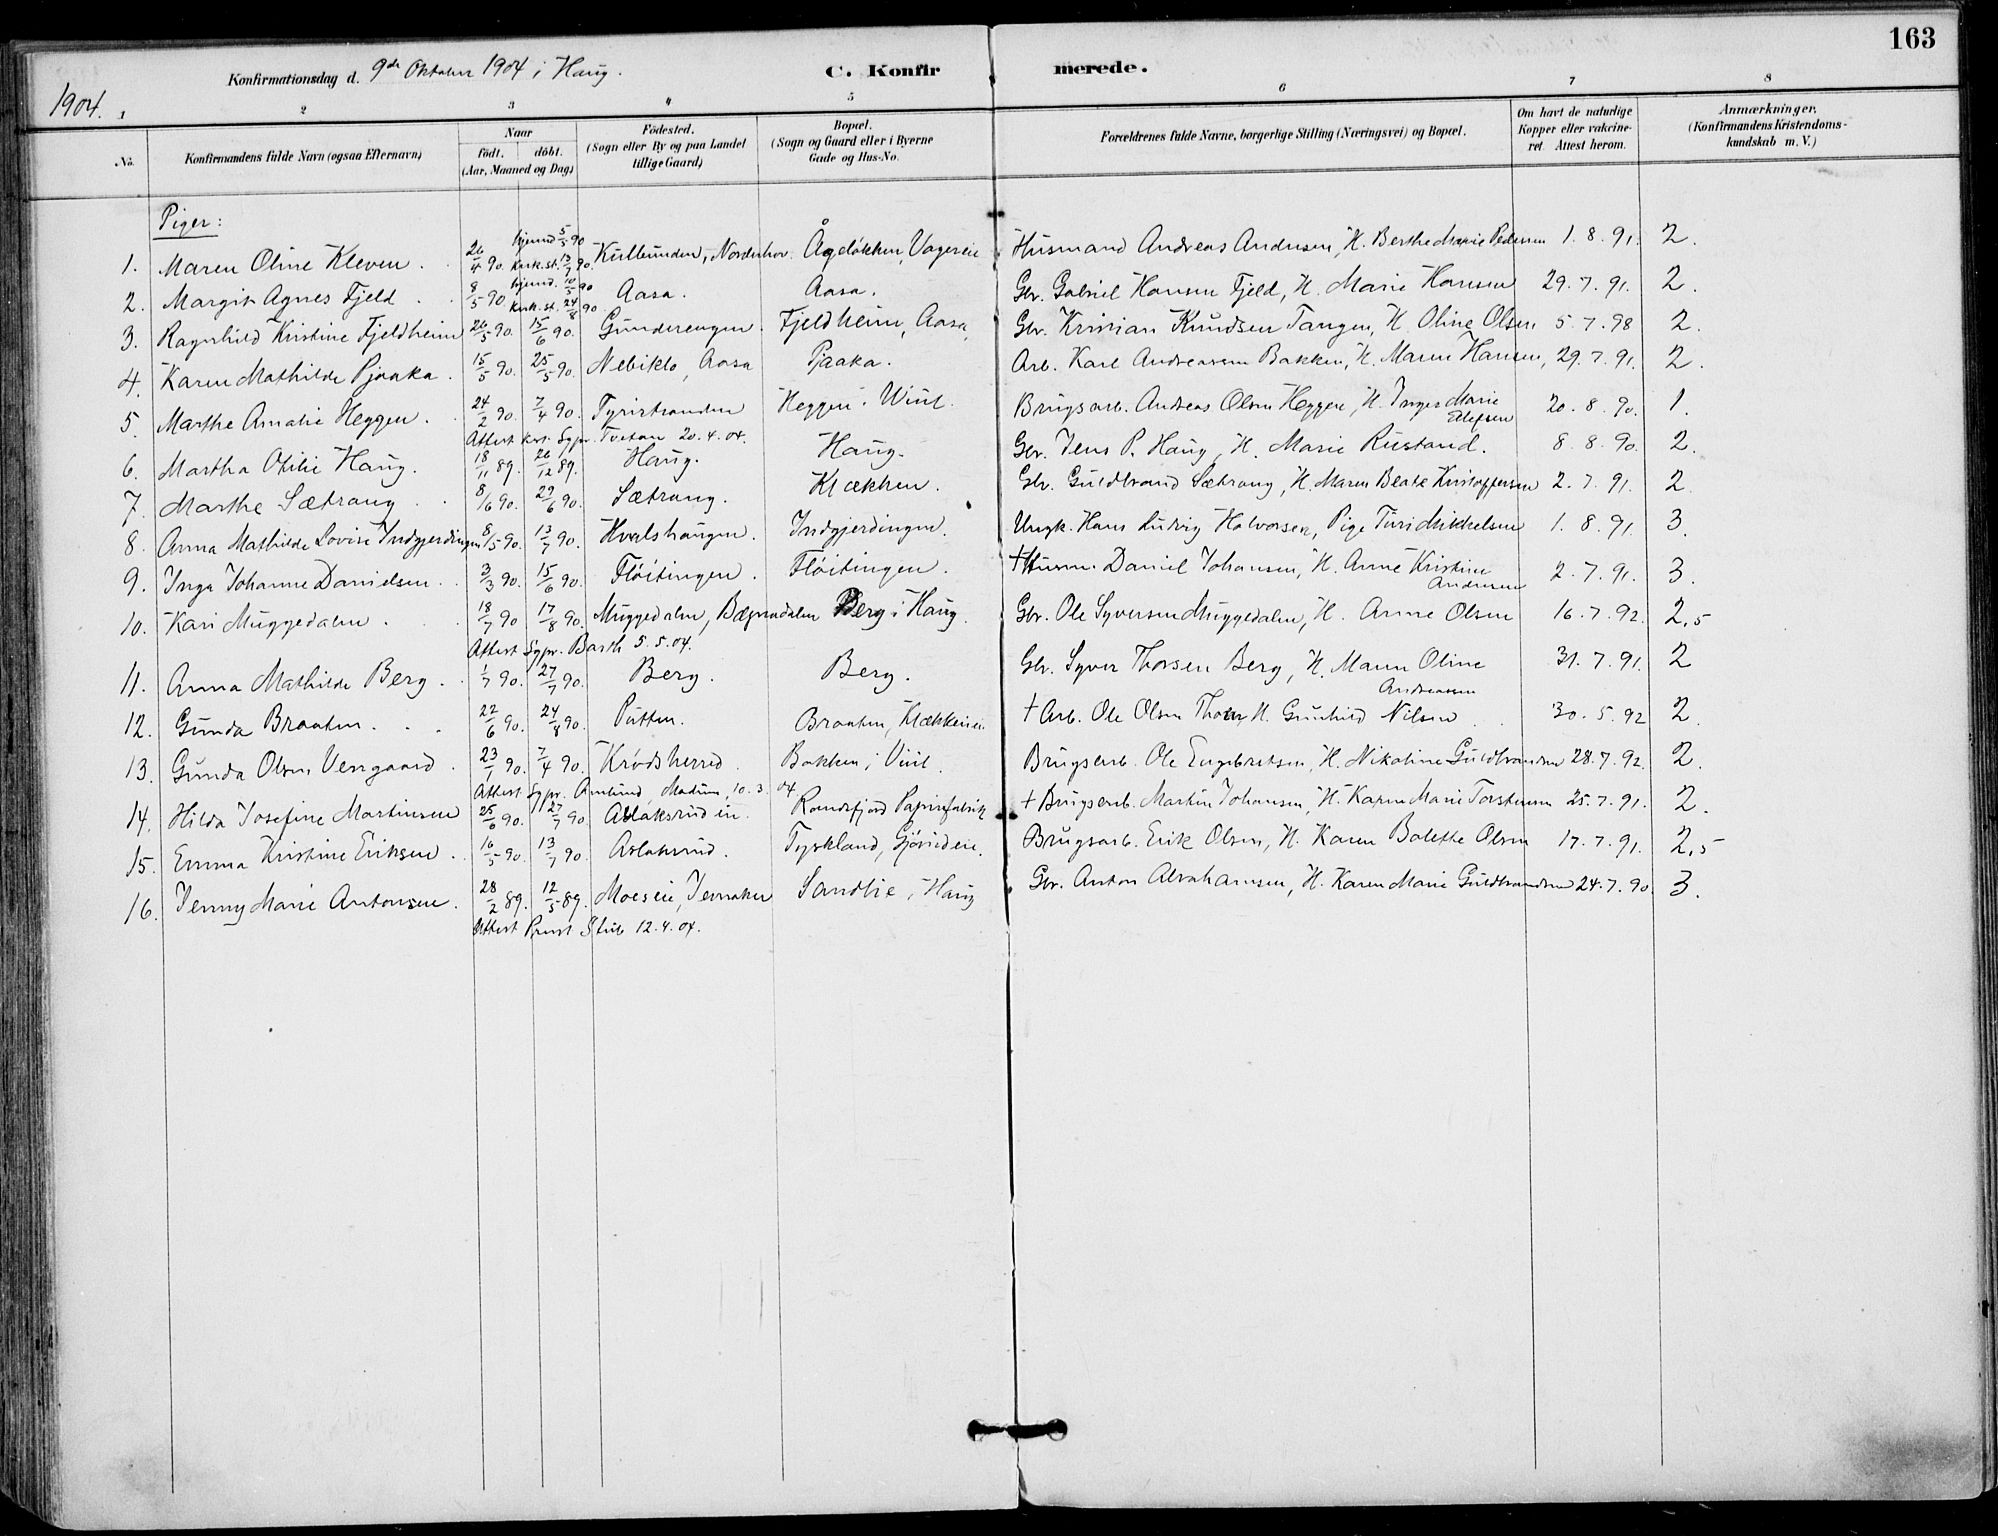 163
Konfirmationsdag d. 9de Oktober 1904 i Haug. C. Konfirmerede.
1904.
1 2 3 4 5 6 7 8
No. Konfirmandens fulde Navn (ogsaa Efternavn) Naar födt. döbt. (Aar, Maaned og Dag) Födested. (Sogn eller By og paa Landet tillige Gaard) Bopæl. (Sogn og Gaard eller i Byerne Gade og Hus-No. Forældrenes fulde Navne, borgerlige Stilling (Næringsvei) og Bopæl. Om havt de naturlige Kopper eller vakcineret. Attest herom. Anmærkninger. (Konfirmandens Kristendomskundskab m. V.)
Piger:
1. Maren Oline Kleven. 26/4 90. hjemd 5/5 90 kirk. st. 13/7 90. Norderhov. Husmand Andreas Andersen, H. Berthe Marie Pedersen 1. 8. 91. 2.
2. Margit Agnes Fjeld. 8/5 90 hjemd. 10/5 90 kirk. st. 24/8 90 Aasa. Aasa. Gbr. Gabriel Hansen Fjeld, H. Marie Hansen 29. 7. 91. 2.
3. Ragnhild Kristine Fjeldheim 26/5 90. 15/6 90. Gunderengen. Fjeldheim, Aasa. Gbr. Kristian Knudsen Tangen, H. Oline Olsen 5. 7. 98 2.
4. Karen Mathilde Pjaaka. 15/5 90. 25/5 90. Nebiklo, Aasa Pjaaka. Arb. Karl Andreassen Bakken, H. Maren Hansen, 29. 7. 91. 2.
5. Marthe Amalie Heggen. 24/2 90. 7/4 90. Tyristranden Heggen i Viul. Brugsarb. Andreas Olsen Heggen, H. Inger Marie Ellefsen 20. 8. 90. 1.
Attest kst. Sgpr. Tvetan 20. 4. 04.
6. Martha Otilie Haug. 18/11 89. 26/12 89. Haug. Haug. Gbr. Jens P. Haug, H. Marie Rustand. 8. 8. 90. 2.
7. Marthe Sætrang 8/6 90. 29/6 90. Sætrang. Klækken. Gbr. Guldbrand Sætrang, H. Maren Beate Kristoffersen 2. 7. 91. 2
8. Anna Mathilde Lovise Indgjerdingen 8/5 90. 13/7 90. Hvalshaugen. Indgjerdingen. Ungk. Hans Ludvig Halvorsen, Pige Turi Mikkelsen 1. 8. 91. 3.
9. Inga Johanne Danielsen. 3/3 90. 15/6 90. Flöitingen. Flöitingen. † Husm. Daniel Johansen, H. Anne Kristine Andersen 2. 7. 91. 3.
10. Kari Muggedalen. 18/7 90 17/8 90. Muggedalen, Bægnadalen Berg i Haug. Gbr. Ole Syversen Muggedalen, H. Anne Olsen 16. 7. 92. 2,5
Attest Sgpr. Barth 5. 5. 04.
11. Anna Mathilde Berg. 1/7 90. 27/7 90. Berg. Berg. Gbr. Syver Thorsen Berg, H. Maren Oline Andreassen 31. 7. 91. 2
12. Gunda Braaten. 22/6 90. 24/8 90. Putten. Braaten, Klækkeneie † Arb. Ole Olsen H. Gunhild Nilsen 30. 5. 92 2.
13. Gunda Olsen Vensgaard. 23/1 90. 7/4 90. Krödsherred. Bakken i Viul. Brugsarb. Ole Engebretsen, H. Nikoline Guldbrandsen 28. 7. 92. 2.
Attest Sgpr. Amlund, Modum, 10. 3. 04
14. Hilda Josefine Martinsen 25/6 90. 27/7 90. Aslaksrud ie. Randsfjord Papirfabrik † Brugsarb. Martin Johansen, H. Karen Marie Torstensen 25. 7. 91. 2.
15. Emma Kristine Eriksen. 16/5 90. 13/7 90. Aslaksrud. Tyskland, Gjövideie. Brugsarb. Erik Olsen, H. Karen Bolette Olsen 17. 7. 91. 2,5
16. Jenny Marie Antonsen. 28/2 89. 12/5 89. Moeseie, Jevnaker Sandlie i Haug Gbr. Anton Abrahamsen, H. Karen Marie Guldbrandsen 24. 7. 90. 3.
Attest Prust Stub 12. 4. 04.